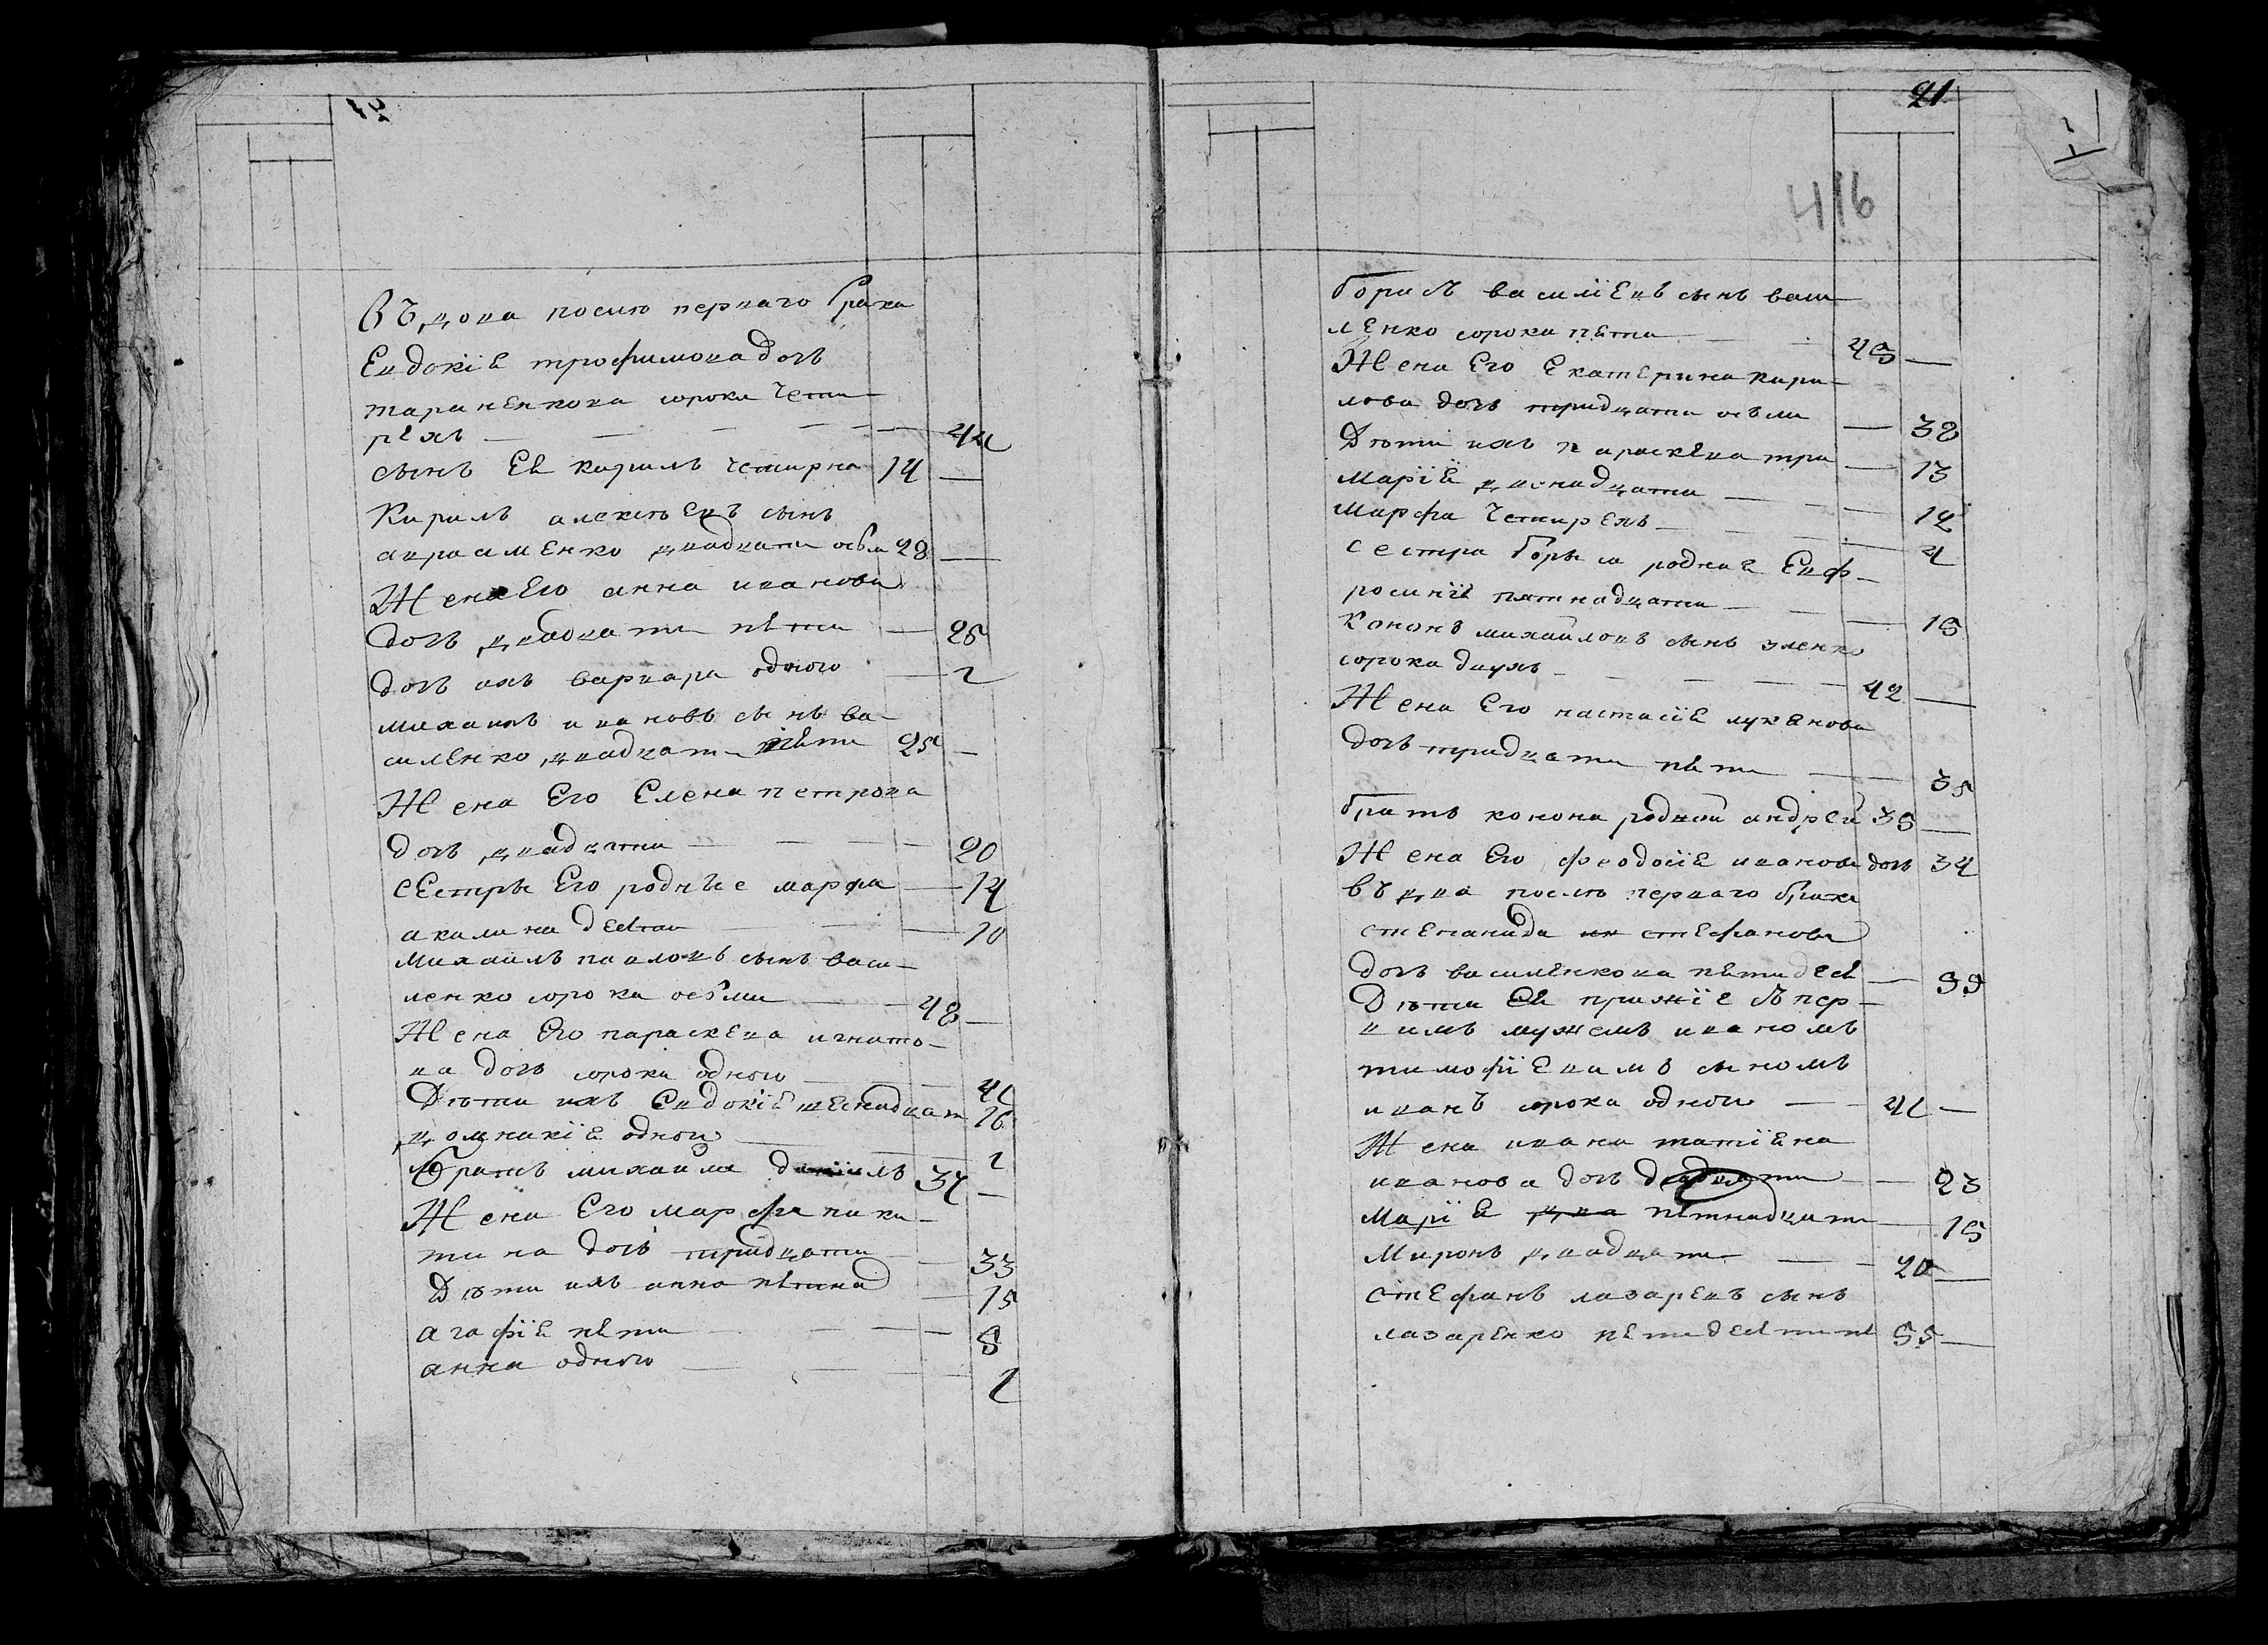 21
Въдова посли перваго брака
Евдокіѣ трофимова дочь
тараненкова сорока чети
рехъ — 44
сынъ Еѣ кирилъ четирна 14 —
Кирилъ алексѣевъ сынъ
авраменко двадцати осьм 28 —
Жена Его анна иванова
дочь двадцати пѣти — 25
дочь ихъ варвара одного — 1
михаилъ ивановъ сынъ ва-
силенко двадцати пѣти 25 —
Жена Его Елена петрова
дочь двадцати — 20
сестры Его родные марфа — 14
акилина десѣти — 10
Михаилъ павловъ сынъ васи-
ленко сорока осьми — 48 —
Жена Его параскева игнато-
ва дочь сорока одного — 41
Дѣти ихъ Евдокіѣ шеснадцат 16
домникіѣ одного — 1
братъ михаила даніилъ 37 —
Жена Его марфа ники-
тина дочь тридцати — 33
Дѣти ихъ анна пѣтнад — 15
агафіѣ пѣти — 5
анна одного — 1
21
416
Борисъ василіевъ сынъ васи-
ленко сорока пѣти — 45 —
Жена Его Екатерина кири-
лова дочь тридцати осьми — 38
Дѣти ихъ параскева три — 13
Маріѣ двенадцати — 12
Марфа Четирехъ — 4
сестра Бориса роднаѣ Евф-
росиніѣ пятнадцати — 15
Кононъ михайловъ сынъ
сорока двухъ — 42 —
Жена Его настасіѣ лукѣнова
дочь тридцати пѣти — 35
братъ конона родной андрей 35 —
Жена Его феодосіѣ иванова дочь 34
въдва послѣ перваго брака
степанида стефанова
дочь василенкова пѣтидесѣ — 55
Дѣти Еѣ прижіе съ пер-
вимъ мужемъ иваномъ
тимофіевимъ сыномъ
иванъ сорока одного — 41 —
Жена ивана татіѣна
иванова дочь двадцати — 23
Маріѣ пѣтнадцати — 15
Миронъ двадцати — 20 —
стефанъ лазаревъ сынъ
лазаренко пѣтидесѣти пѣ 55 —